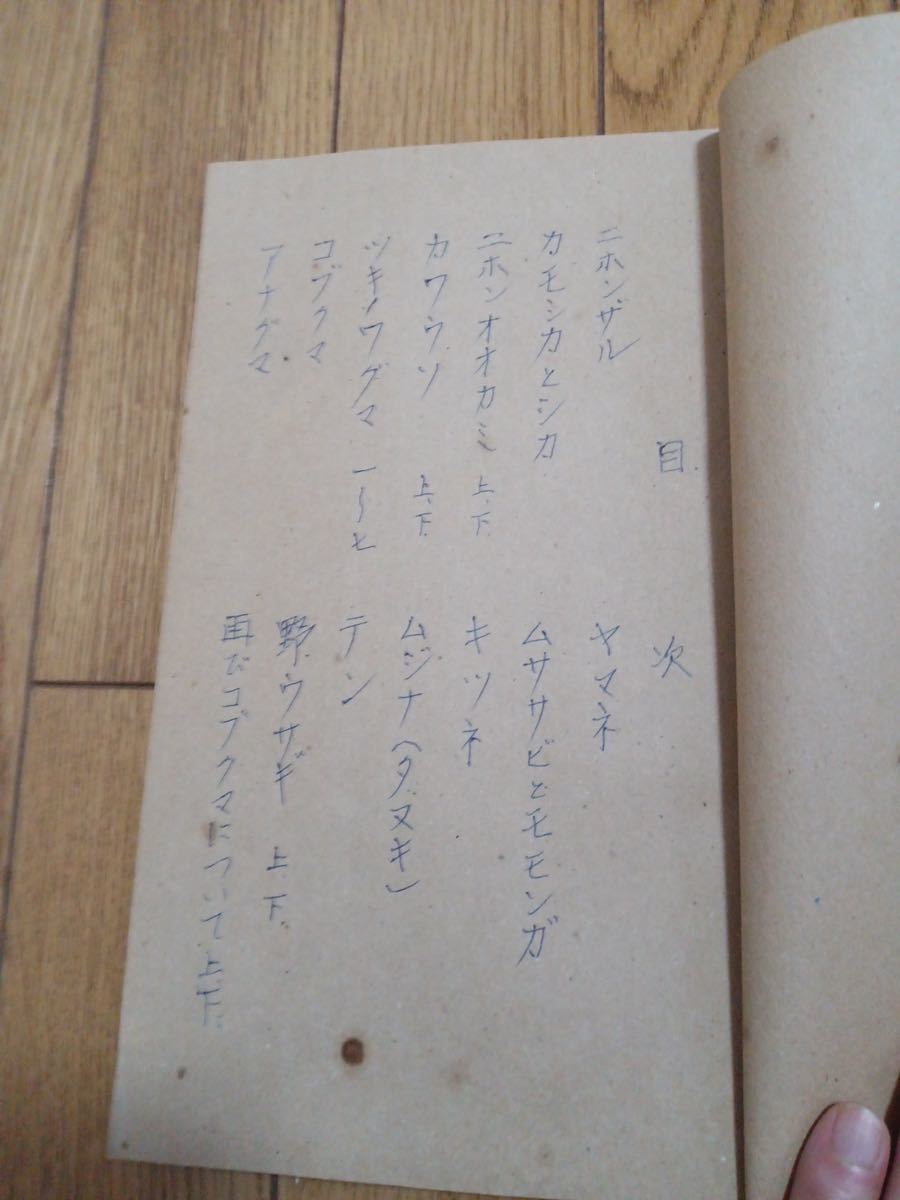 目次
ニホンザル
カモシカとシカ
ニホンオオカミ 上、下
カワウソ 上、下
ツキノワグマ 一〜七
コブクマ
アナグマ
ヤマネ
ムササビとモモンガ
キツネ
ムジナ(タヌキ)
テン
野ウサギ 上、下
再びコブクマについて 上、下